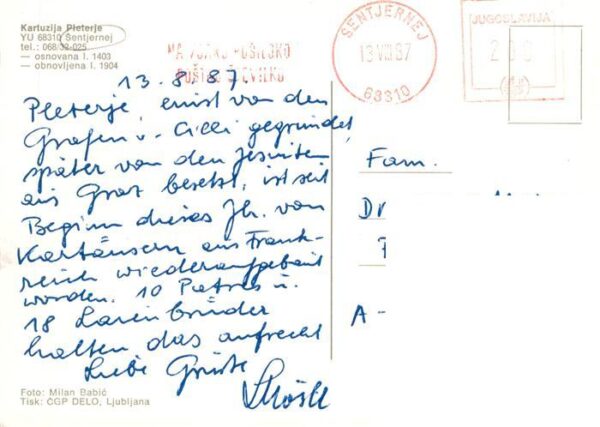 Kartuzija Pleterje
YU 68310 Šentjernej
tel.: 068/32-025
— osnovana l. 1403
— obnovljena l. 1904
ŠENTJERNEJ
13 VIII 87
68310
JUGOSLAVIJA
NA VSAKO POŠILJKO
POŠTNO ŠTEVILKO
13. 8. 87
Pleterje, einst von den
Grafen v. Cilli gegründet,
später von den Jesuiten
aus Graz besetzt, ist seit
Beginn dieses Jh. von
Kartäusern aus Frank-
reich wiederaufgebaut
worden. 10 Patres u.
18 Laienbrüder
halten das aufrecht
Liebe Grüße
Fam.
A -
Foto: Milan Babič
Tisk: ČGP DELO, Ljubljana